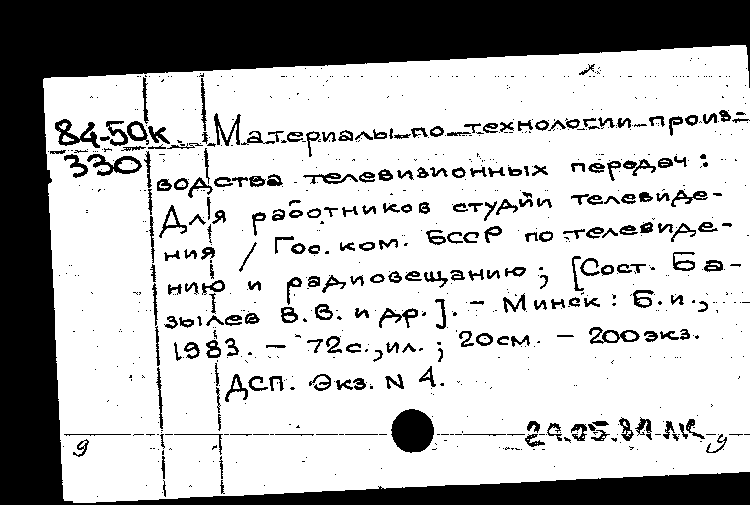 84-50к Материалы по технологии произ=
330 водства телевизионных передач :
Для работников студии телевиде-
ния / Гос. ком. БССР по телевиде-
нию и радиовещанию ; [Сост. Ба-
зылев В.В. и др.]. - Минск : Б.и.,
1983. - 72с.,ил. ; 20см. - 200экз.
ДСП. Экз. N 4.